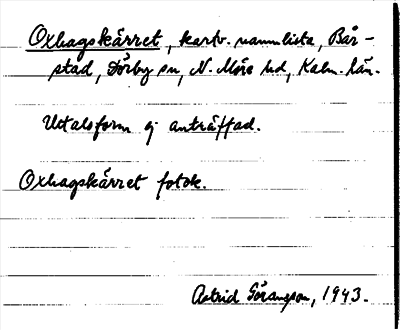 Oxhagskärret, kartv. namnlista, Bår-
stad, Förby sn, N. Möre hd, Kalm. län.
Uttalsform ej anträffad.
Oxhagskärret fotok.
Astrid Göransson, 1943.